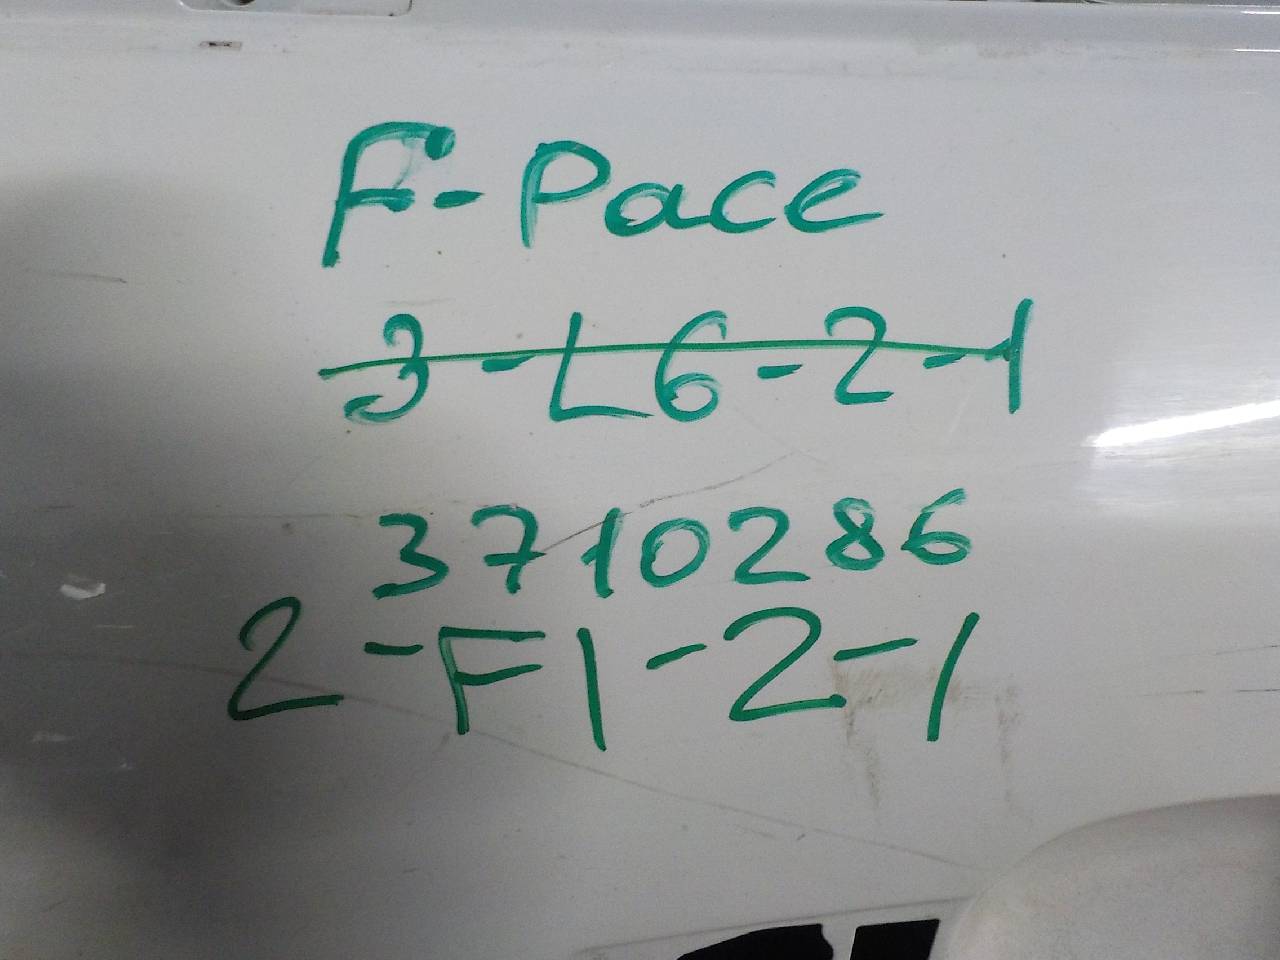 F-Pace
3-L6-2-1
3710286
2-F1-2-1